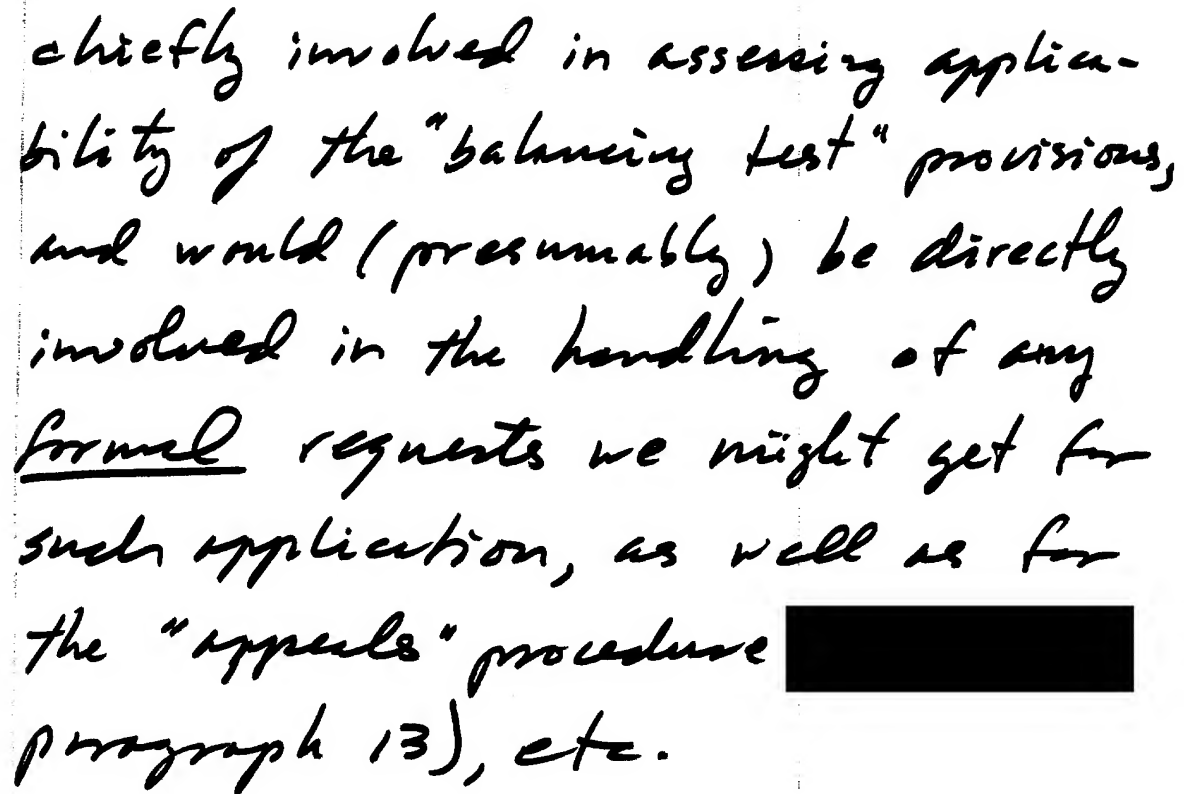 chiefly involved in assessing applica-
bility of the "balancing test" provisions,
and would (presumably) be directly
involved in the handling of any
formal requests we might get for
such application, as well as for
the "appeals" procedure
paragraph 13), etc.